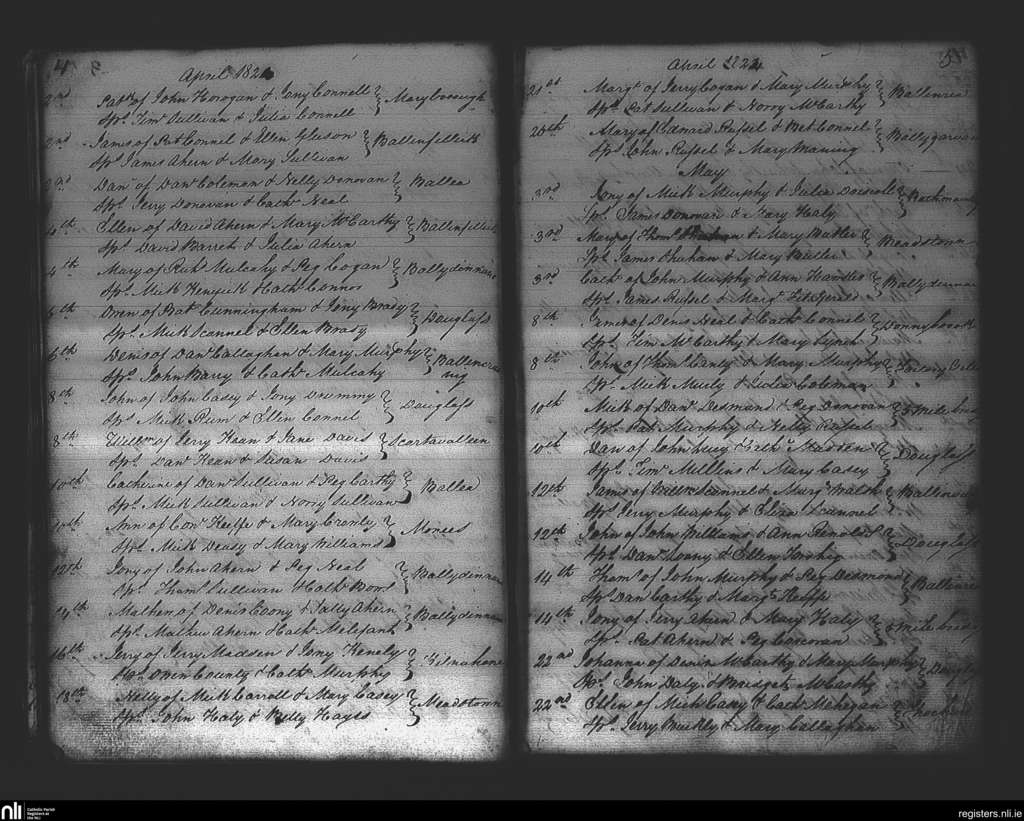 4
April 1824
2nd Patk of John Horogan & Jony Connell } Maryborough
Sps Timy Sullivan & Julia Connell
2nd James of Pat Connel & Ellen Gleson } Ballinfellick
Sps James Ahern & Mary Sullivan
2nd Danl of Danl Coleman & Nelly Donovan } Ballea
Sps Jerry Donovan & Cathe Neal
4th Ellen of David Ahern & Mary McCarthy } Ballinfellick
Sps David Barrett & Julia Ahern
4th Mary of Richd Mulcahy & Peg Cogan } Ballydinnane
Sps Mick Kenefick & Cathe Connor
6th Owen of Pat Cunningham & Jony Brady } Douglass
Sps Mick Scannel & Ellen Brady
6th Denis of Danl Callaghan & Mary Murphy }
Sps John Barry & Cathe Mulcahy
8th John of John Casey & Jony Drummy } Douglass
Sps Mick Rum & Ellen Connel
8th Willm of Jerry Kean & Jane Davis } Scortavalleen
Sps Danl Kean & Susan Davis
10th Catherine of Danl Sullivan & Peg Carthy } Ballea
Sps Mick Sullivan & Norry Sullivan
Ann of Conr Keeffe & Mary Cronly } Monees
Sps Mick Deasy & Mary Williams
12th Jony of John Ahern & Peg Neal } Ballydinnane
Sps Thoms Sullivan & Cathe
14th Mathew of Denis Coony & Sally Ahern } Ballydinnane
Sps Mathew Ahern & Cathe Melifant
16th Jerry of Jerry Madden & Jony Kenely } Kilnahone
Sps Owen County & Cathe Murphy
18th Nelly of Mick Carroll & Mary Casey } Meadstown
Sps John Haly & Nelly Hayes
5
April 1824
21st Margt of Jerry Cogan & Mary Murphy } Ballinrea
Sps Pat Sullivan & Norry McCarthy
26th Mary of Edward Russel & Bet Connel } Ballygarvan
Sps John Russel & Mary Maning
May
3rd Jony of Mick Murphy & Julia
Sps James Donovan & Mary Haly
3rd Mary of Thoms & Mary Butler } Meadstown
Sps James Shahan & Mary Butler
3rd Cathe of John Murphy & Ann Handles } Ballydinnane
Sps James Russel & Margt Fitzgerald
8th James of Denis Neal & Cathe Connel } Donnybrook
Sps Tim McCarthy & Mary Lynch
8th John of Thoms Canty & Mary Murphy
Sps Mick Murly & Lidia Coleman
10th Mick of Danl Desmond & Peg Donovan } 5 mile brid
Sps Pat Murphy & Nelly
10th Dan of John Lucy & Cathe Madden } Douglass
Sps Timy Mullens & Mary Casey
12th James of Willm Scannel & Margt Walsh
Sps Jerry Murphy & Eliza Scannel
12th John of John Williams & Ann Renolds } Douglass
Sps Danl Loony & Ellen Hoskig
14th Thoms of John Murphy & Peg Desmond } Ballinrea
Sps Dan Carthy & Margt Keeffe
14th Jony of Jerry Ahern & Mary Haly } 5 mile bridg
Sps Pat Ahern & Peg Corcoran
22nd Johanna of Denis McCarthy & Mary Murphy } Douglass
Sps John Daly & Bridget McCarthy
22nd Ellen of Mich Casey & Cathe Mehegan
Sps Jerry Buckley & Mary Callaghan
nli Catholic Parish Registers at the NLI
registers.nli.ie